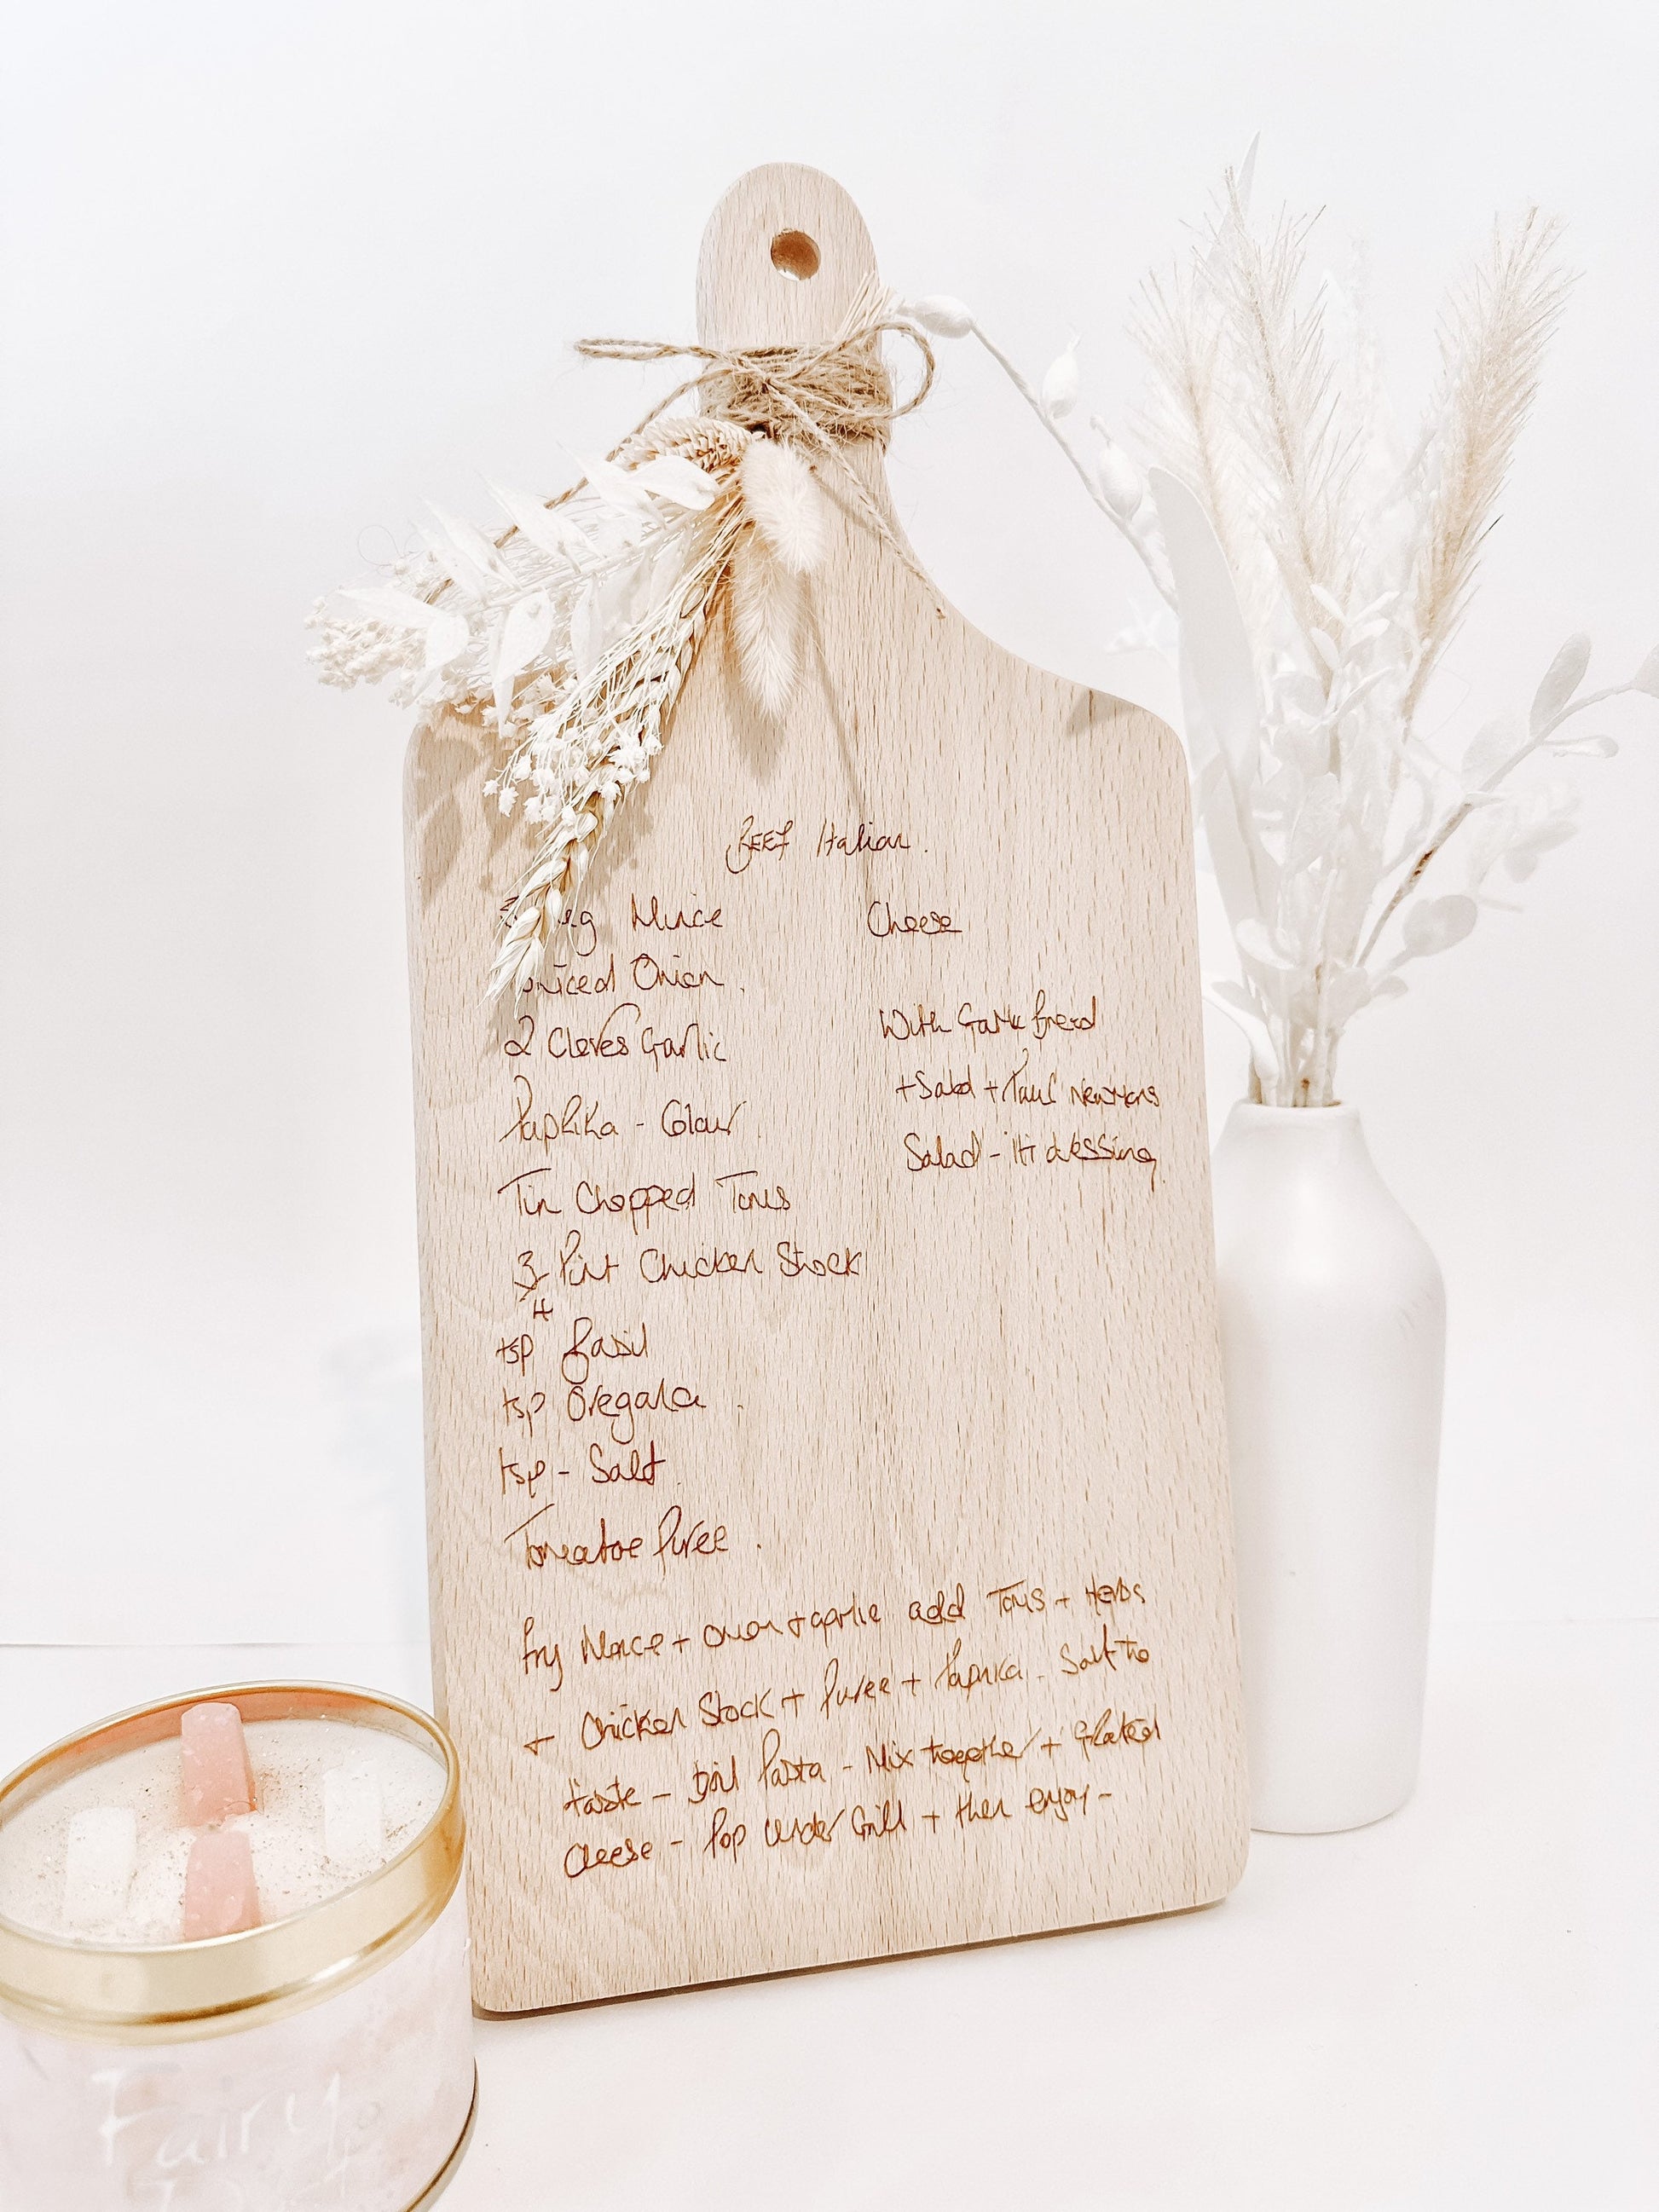 BEEF Italian.
Mince
Onion.
2 Cloves Garlic
Paprika - Colour.
Tin Chopped Toms
3/4 Pint Chicken Stock
tsp Basil
tsp Oregano.
tsp - Salt.
Tomatoe Puree.
Cheese
With Garlic Bread
+ Salad + Paul Newmans
Salad - It dressing.
Fry Mince + onion + garlic add Toms + Herbs
+ Chicken Stock + Puree + Paprika. Salt to
taste - boil Pasta - Mix together + Grated
Cheese - Pop Under Grill + then enjoy -
Fairy